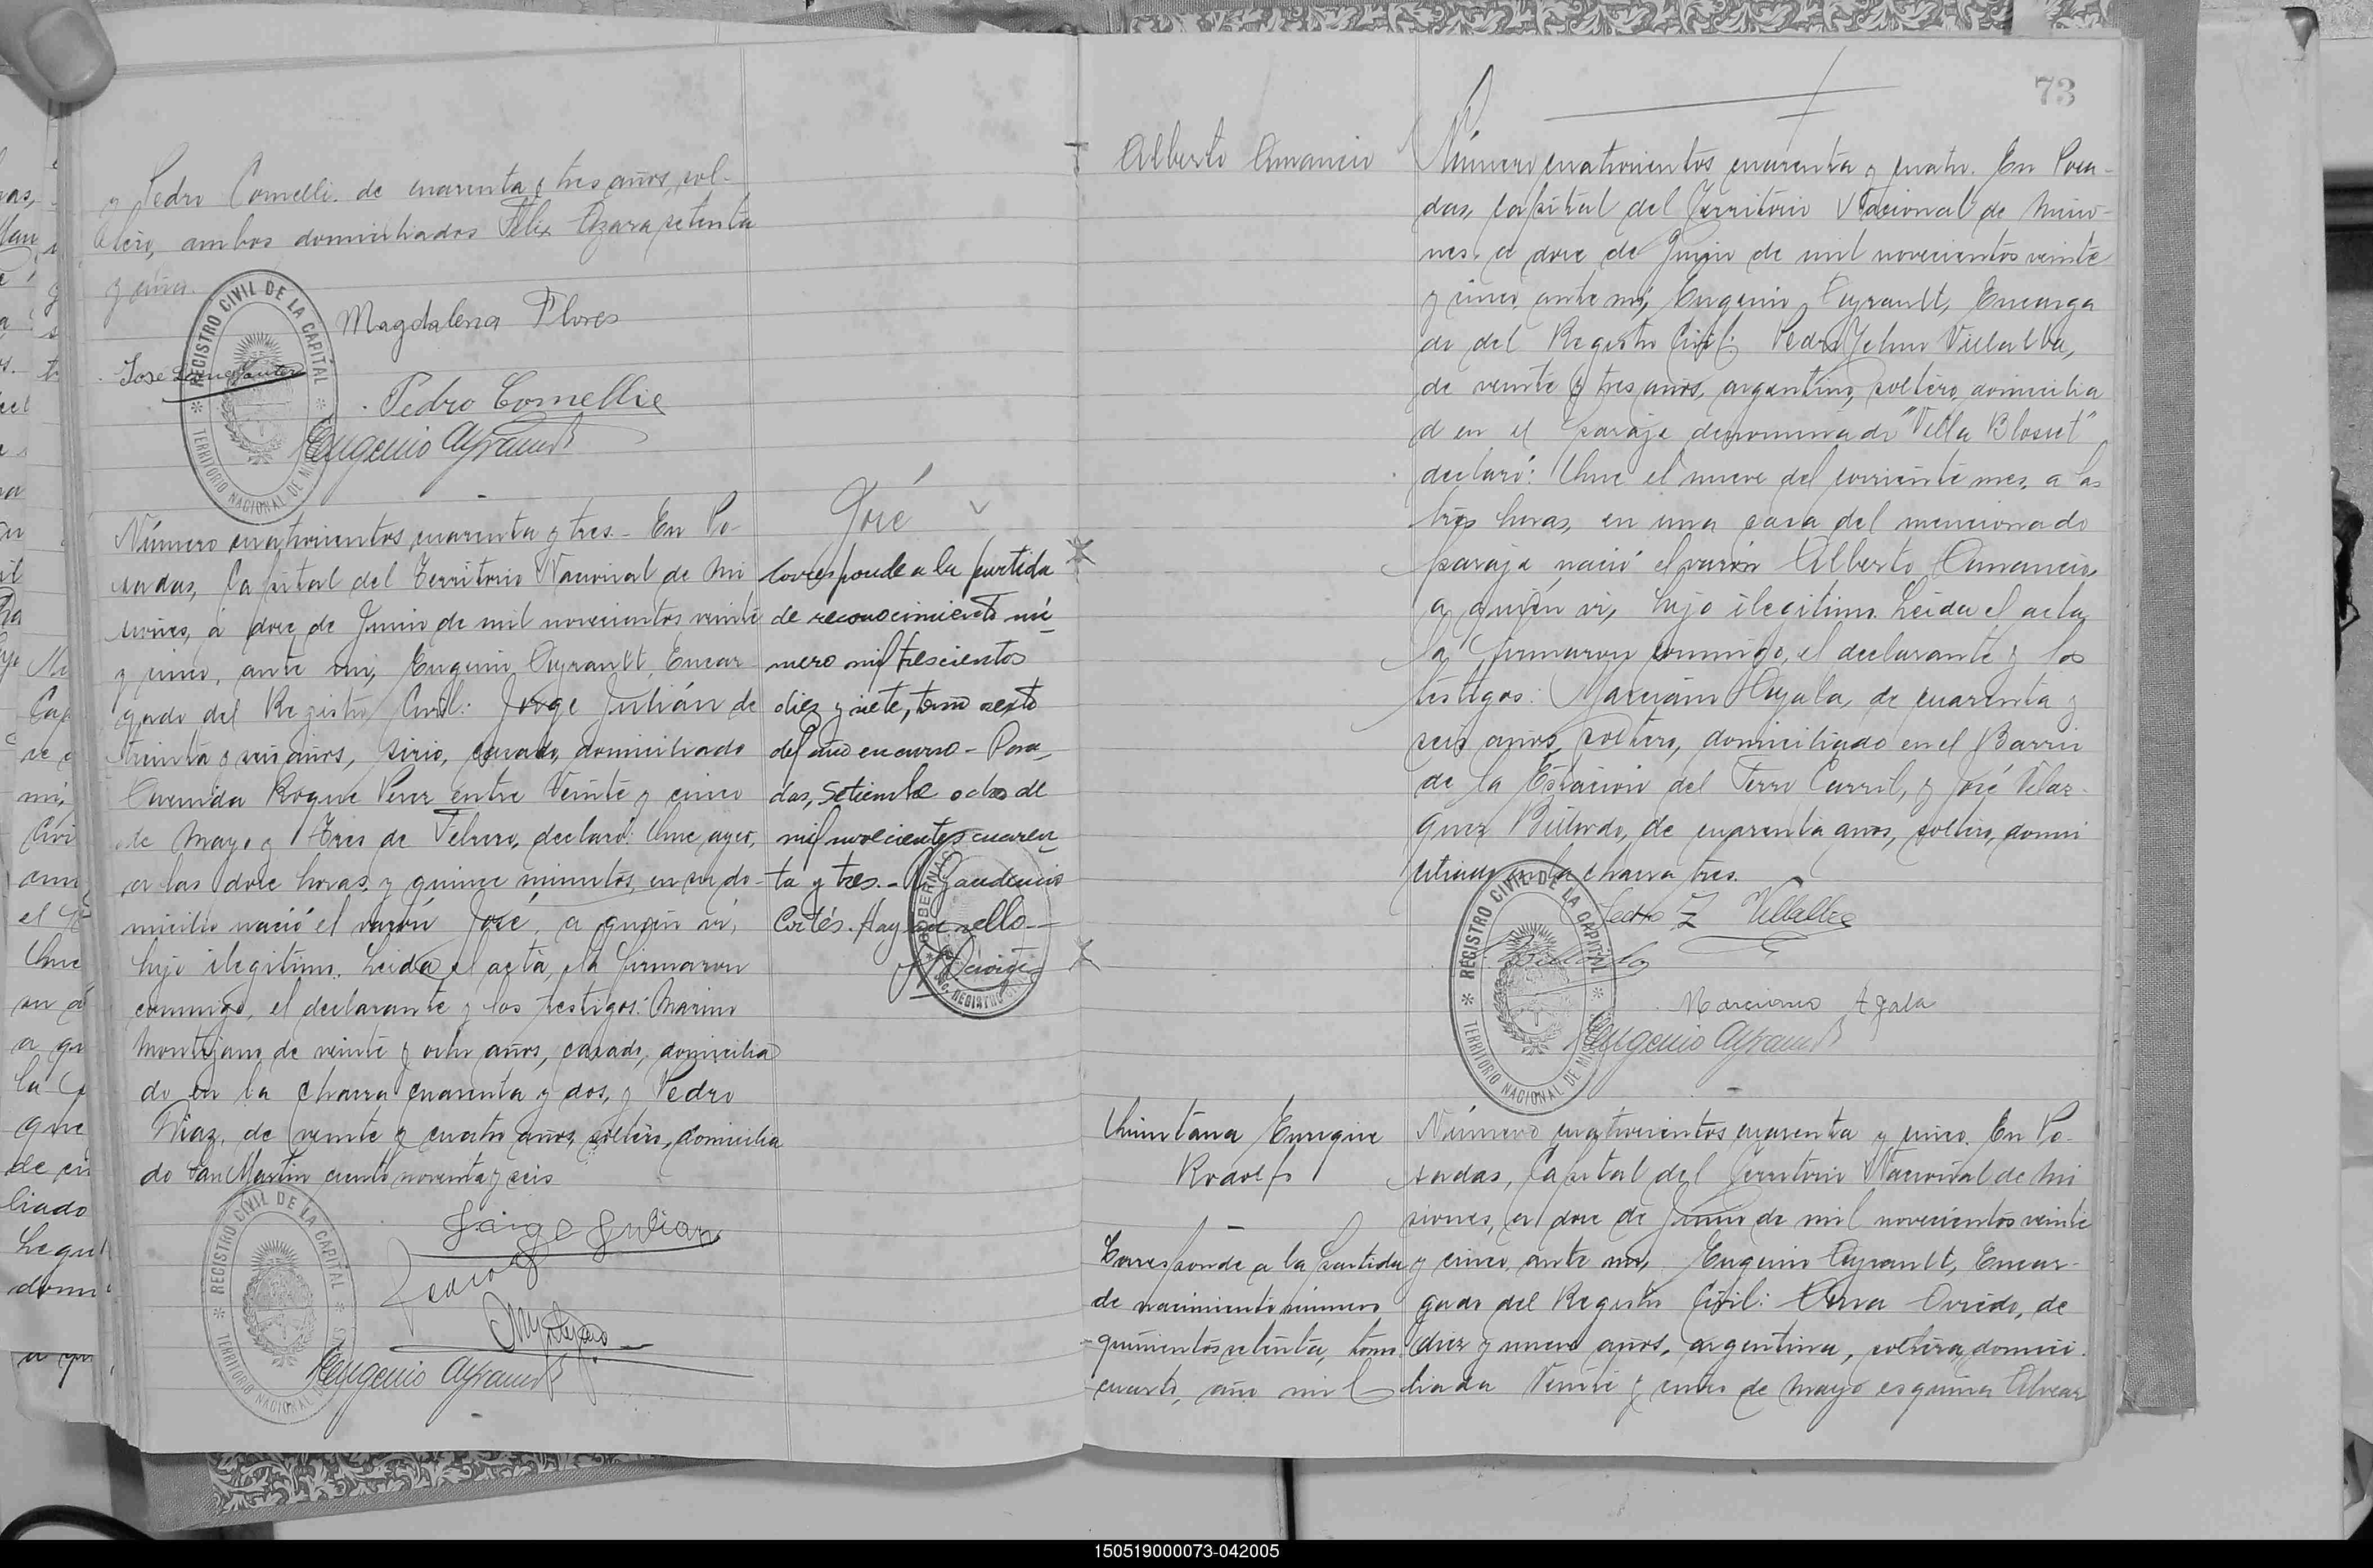 y Pedro Comelli. de cuarenta y tres años, sol-
tero, ambos domiciliados Félix Azara setenta
y cinco.
REGISTRO CIVIL DE LA CAPITAL
TERRITORIO NACIONAL DE MISIONES
Magdalena Flores
José
Pedro Comellie
Eugenio Ayrault
José
Número cuatrocientos cuarenta y tres.- En Po-
sadas, Capital del Territorio Nacional de Mi
siones, á doce de Junio de mil novecientos veinte
y cinco, ante mi, Eugenio Ayrault, Encar
gado del Registro Civil: Jorge Julián de
treinta y seis años, sirio, casado, domiciliado
Avenida Roque Perez entre Veinte y cinco
de Mayo y Tres de Febrero, declaró: Que ayer,
a las doce horas y quince minutos, en su do-
micilio nació el varón José, a quien vi,
hijo ilegítimo. Leida el acta, la firmaron
conmigo, el declarante y los testigos: Marino
Montejano, de veinte y ocho años, casado, domicilia
do en la chacra cuarenta y dos, y Pedro
Diaz, de veinte y cuatro años, soltero, domicilia
do San Martin ciento noventa y seis
Corresponde a la partida
de reconocimiento nú-
mero mil trescientos
diez y siete, tomo sexto
del año en curso - Posa-
das, Setiembre ocho de
mil novecientos cuaren-
ta y tres. - Gaudencio
Cortés. Hay un sello -
REGISTRO CIVIL DE LA CAPITAL
TERRITORIO NACIONAL DE MISIONES
Jorge Julian
Eugenio Ayrault
73
Alberto Amancio
Número cuatrocientos cuarenta y cuatro. En Posa-
das, Capital del Territorio Nacional de Misio-
nes, a doce de Junio de mil novecientos veinte
y cinco, ante mí, Eugenio Ayrault, Encarga
do del Registro Civil: Pedro Villalba,
de veinte y tres años, argentino, soltero, domicilia
d en el paraje denominado "Villa Blosset"
declaró: Que el nueve del corriente mes, a las
tres horas, en una casa del mencionado
paraje nació el varón Alberto Amancio,
a quien vi, hijo ilegítimo. Leida el acta,
la firmaron conmigo, el declarante y los
testigos: Marciano Ayala, de cuarenta y
seis años, soltero, domiciliado en el Barrio
de la Estación del Ferro Carril, y José Velaz-
quez de cuarenta años, soltero, domi
ciliado en la chacra tres.
REGISTRO CIVIL DE LA CAPITAL
TERRITORIO NACIONAL DE MISIONES
Pedro Z Villalba
Marciano Ayala
Eugenio Ayrault
Quintana Enrique
Rodolfo
Corresponde a la partida
de nacimiento número
quinientos setenta, tomo
cuarto, año mil
Número cuatrocientos cuarenta y cinco. En Po-
sadas, Capital del Territorio Nacional de Mi
siones, a doce de Junio de mil novecientos veinte
y cinco, ante mi, Eugenio Ayrault, Encar-
gado del Registro Civil: Oviedo, de
diez y nueve años, argentina, soltera, domici-
liada Veinte y cinco de Mayo esquina Alvear
150519000073-042005